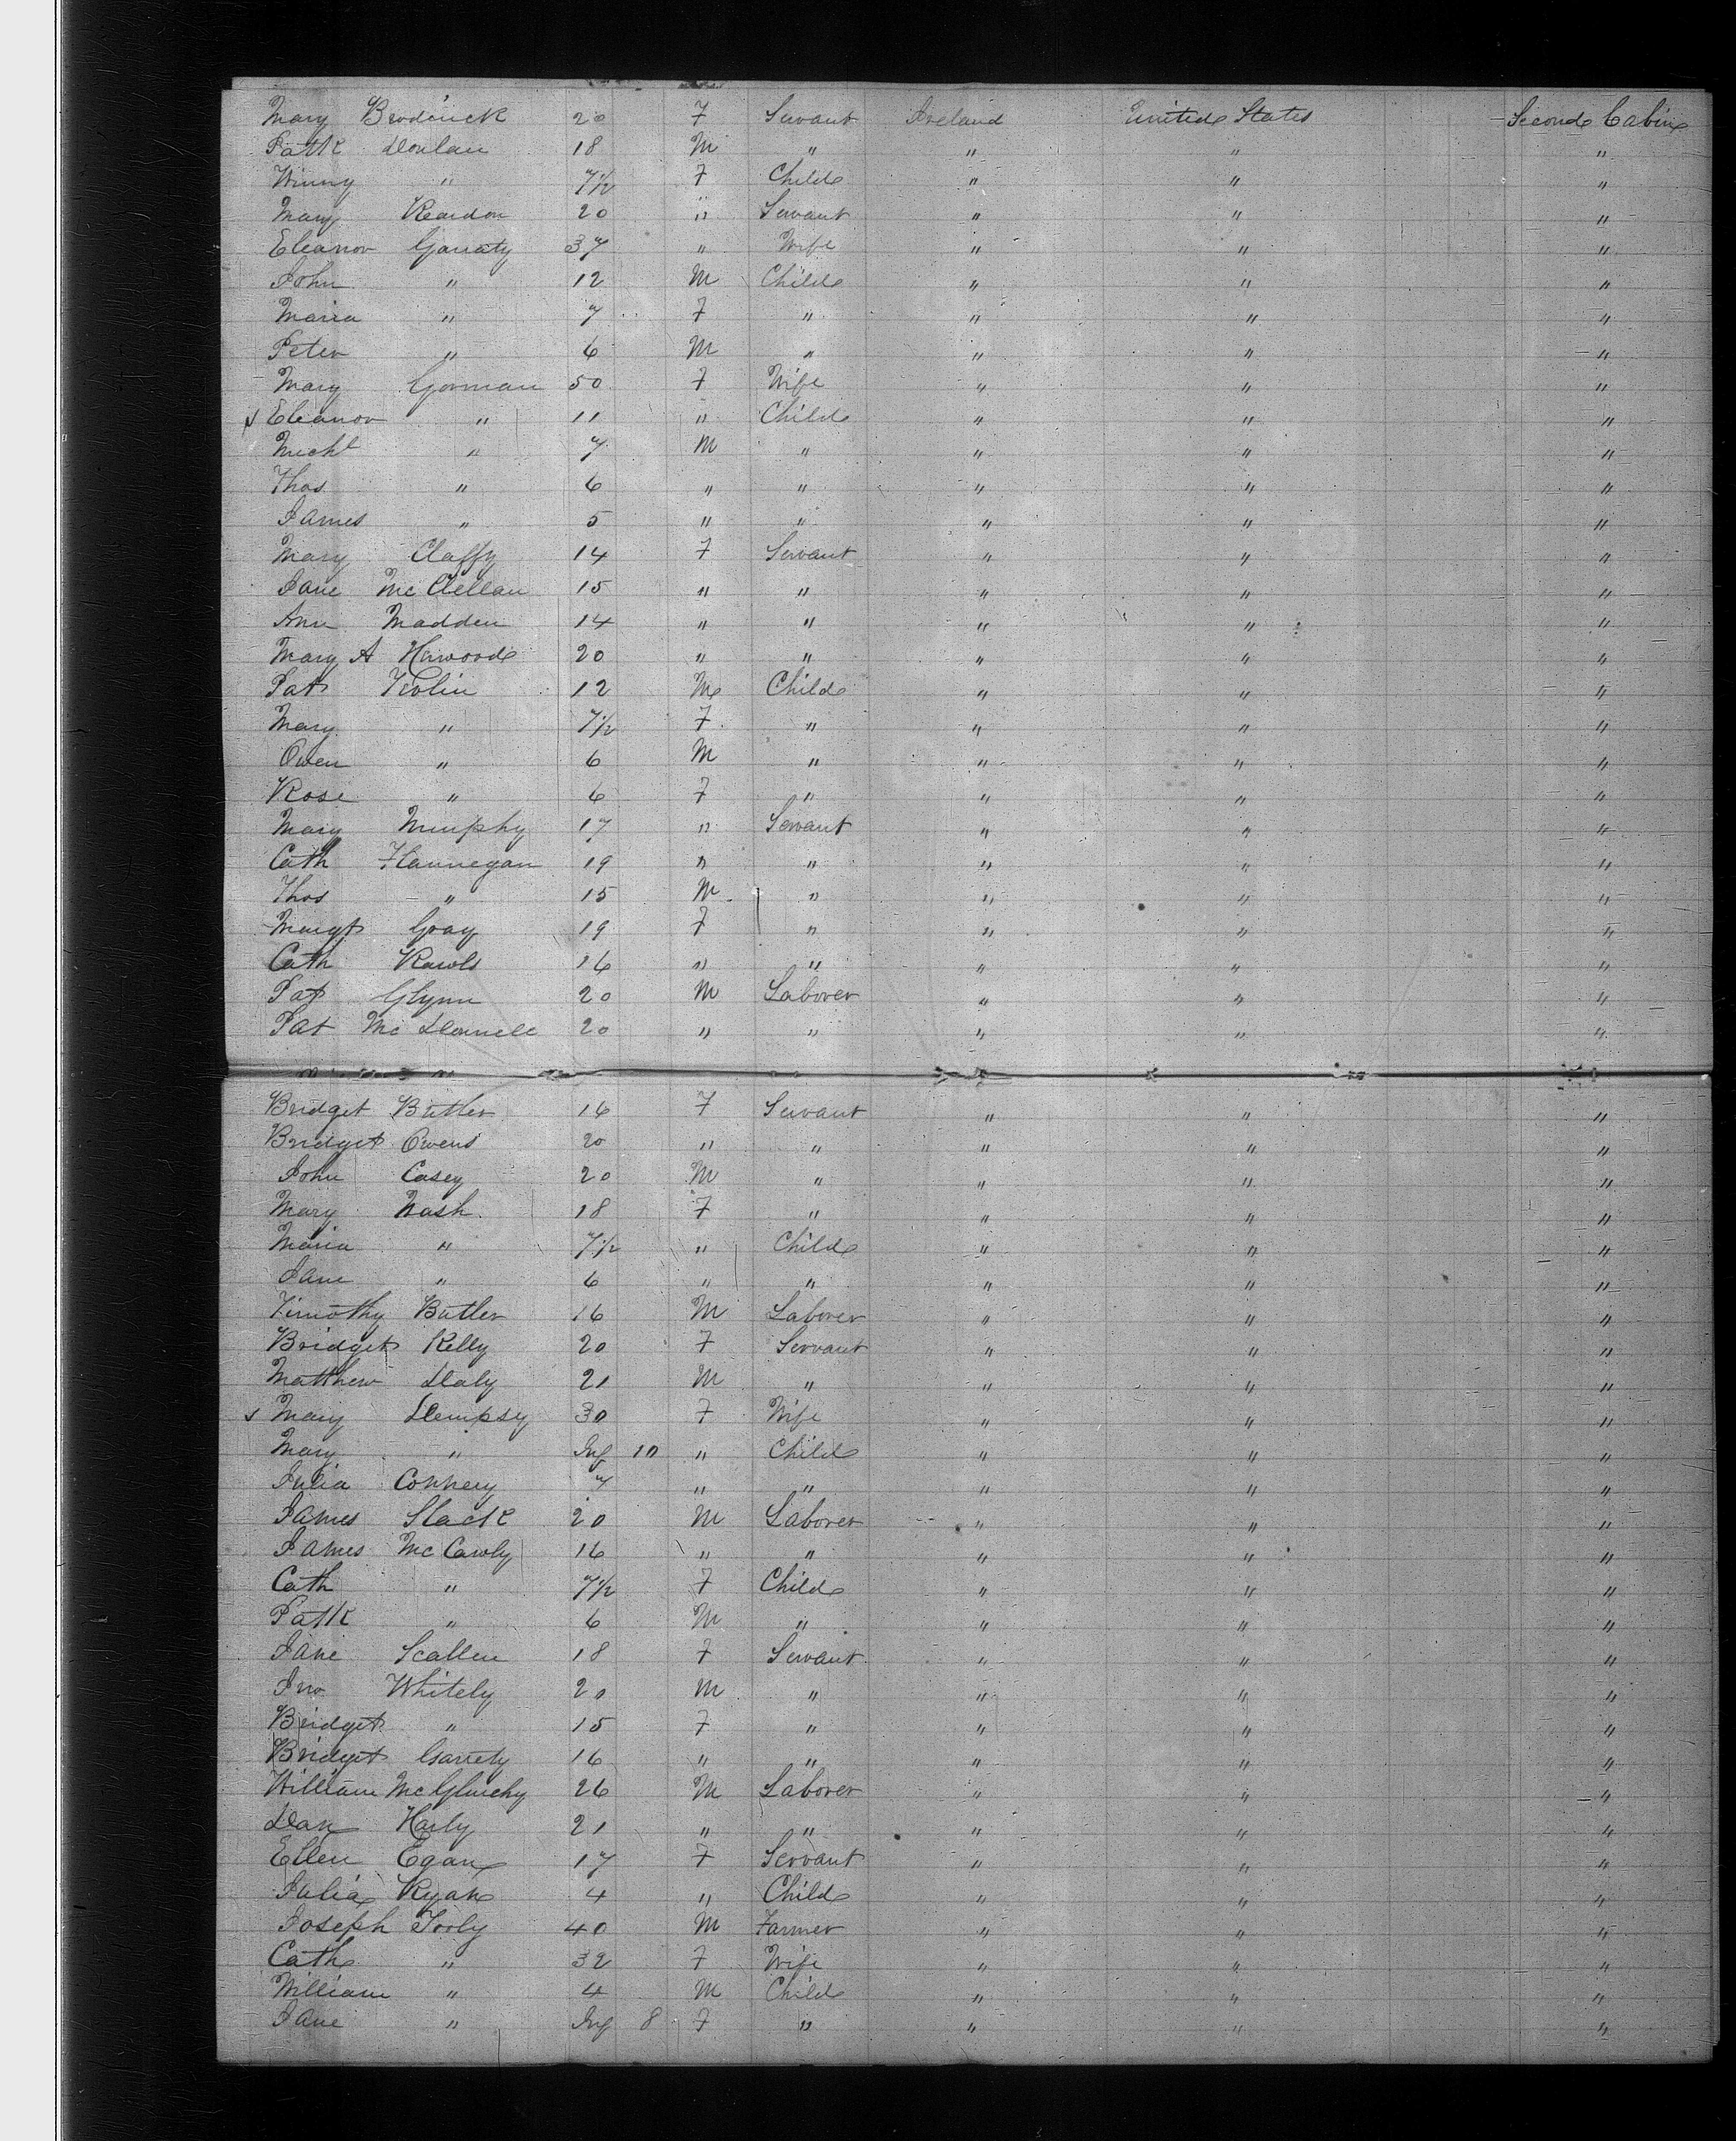 Mary Broderick 20 F Servant Ireland United States Second Cabin
Patk Donlan 18 M " " " "
Winny " 7½ F Child " " "
Mary Reardon 20 " Servant " " "
Eleanor Garraty 37 " Wife " " "
John " 12 M Child " " "
Maria " 7 F " " " "
Peter " 6 M " " " "
Mary Gorman 50 F Wife " " "
Eleanor " 11 " Child " " "
Michl " 7 M " " " "
Thos " 6 " " " " "
James " 5 " " " " "
Mary Claffy 14 F Servant " " "
Jane McClellan 15 " " " " "
Ann Madden 14 " " " " "
Mary A 20 " " " " "
Pat 12 M Child " " "
Mary " 7½ F " " " "
Owen " 6 M " " " "
Rose " 6 F " " " "
Mary Murphy 17 " Servant " " "
Cath Flannegan 19 " " " " "
Thos " 15 M " " " "
Margt Gray 19 F " " " "
Cath Rawls 16 " " " " "
Pat Glynn 20 M Laborer " " "
Pat McDonnell 20 " " " " "
Bridget Butler 16 F Servant " " "
Bridget Owens 20 " " " " "
John Casey 20 M " " " "
Mary Nash 18 F " " " "
Maria " 7½ " Child " " "
Jane " 6 " " " " "
Timothy Butler 16 M Laborer " " "
Bridget Kelly 20 F Servant " " "
Matthew Daly 21 M " " " "
Mary Dempsy 30 F Wife " " "
Mary " Inf 10 " Child " " "
Julia Connery 7 " " " " "
James Slack 20 M Laborer " " "
James McCawly 16 " " " " "
Cath " 7½ F Child " " "
Patk " 6 M " " " "
Jane Scallen 18 F Servant " " "
Jno Whitely 20 M " " " "
Bridget " 15 F " " " "
Bridget Garrety 16 " " " " "
William McGlinchy 26 M Laborer " " "
Dan Harly 21 " " " " "
Ellen Egan 17 F Servant " " "
Julia Ryan 4 " Child " " "
Joseph Tooly 40 M Farmer " " "
Cath " 32 F Wife " " "
William " 4 M Child " " "
Jane " Inf 8 F " " " "